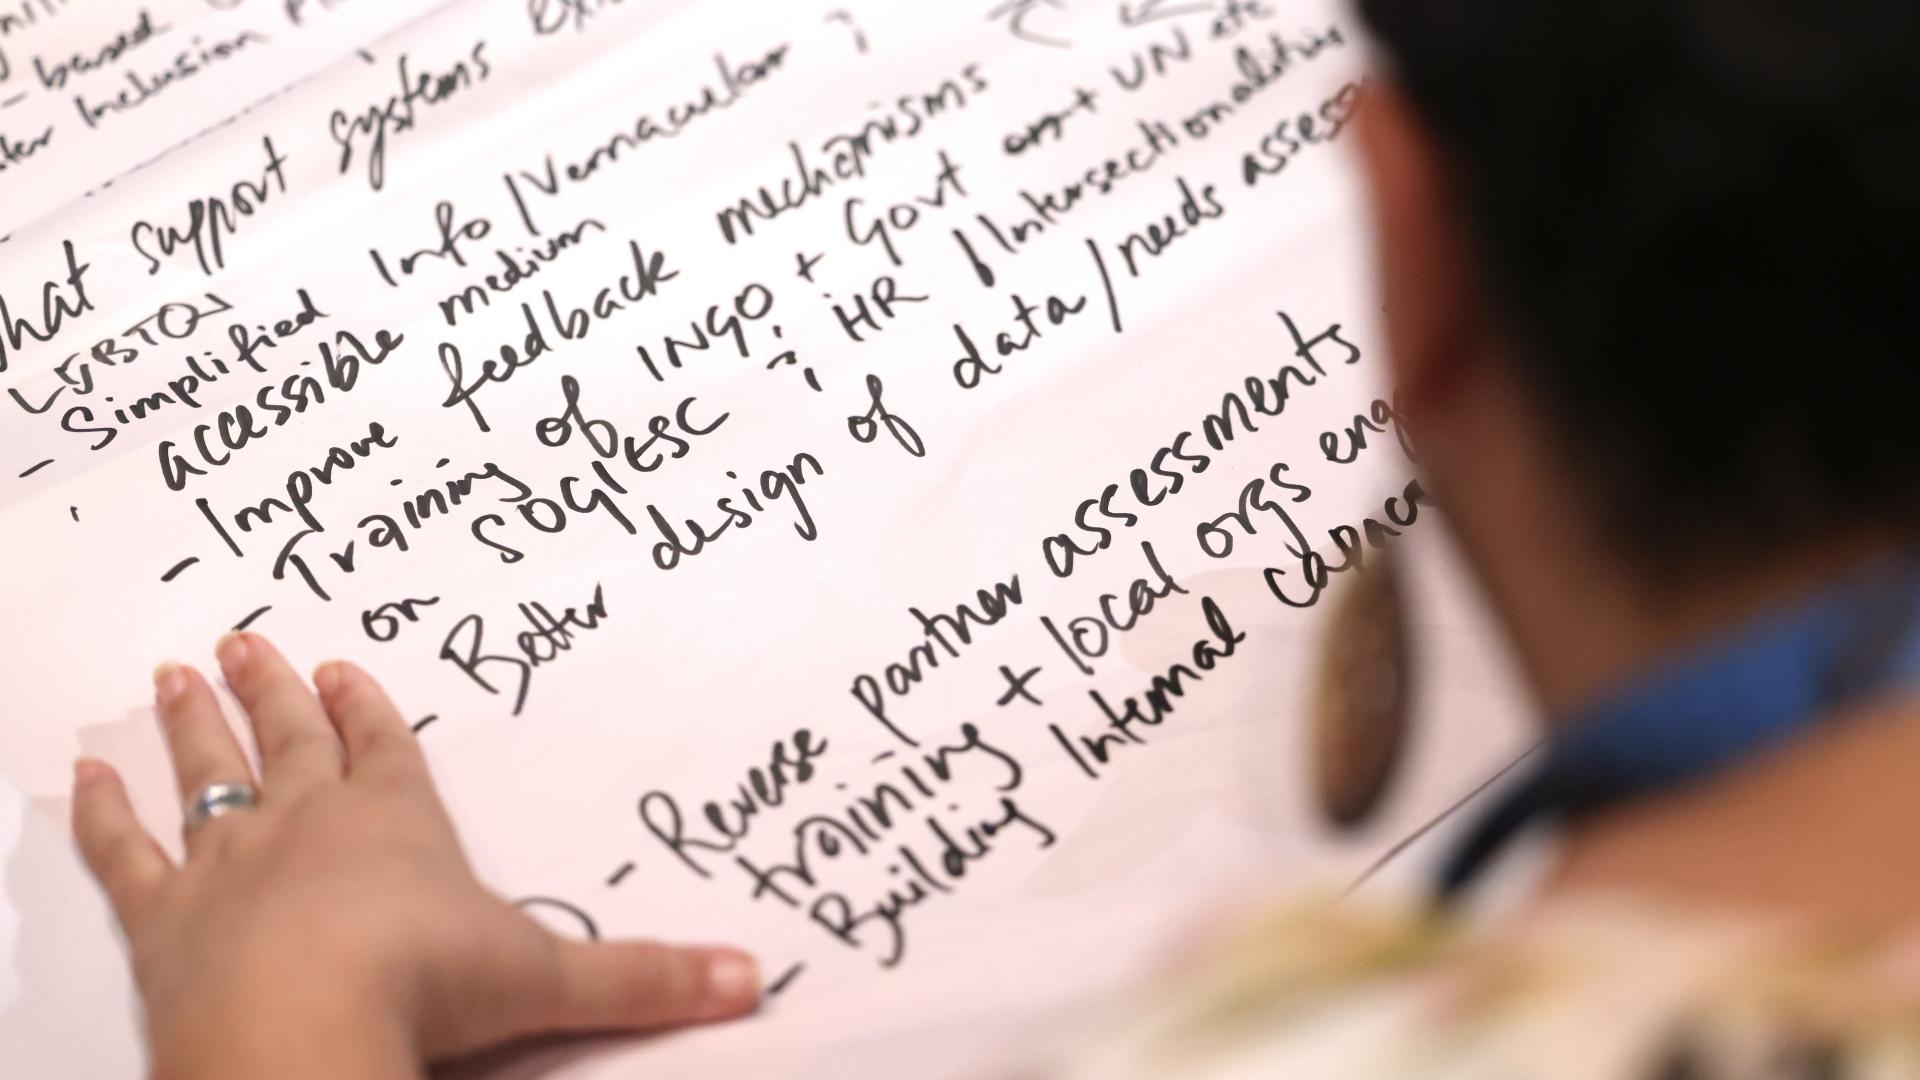 - based
Inclusion
What support systems
LGBTQ
- Simplified Info / Vernacular ;
accessible medium
- Improve feedback mechanisms
- Training of INGO + Govt org + UN etc
on SOGIESC ; HR / Intersectionalities
- Better design of data / needs assess
- Reverse partner assessments
training + local orgs eng
- Building Internal capac